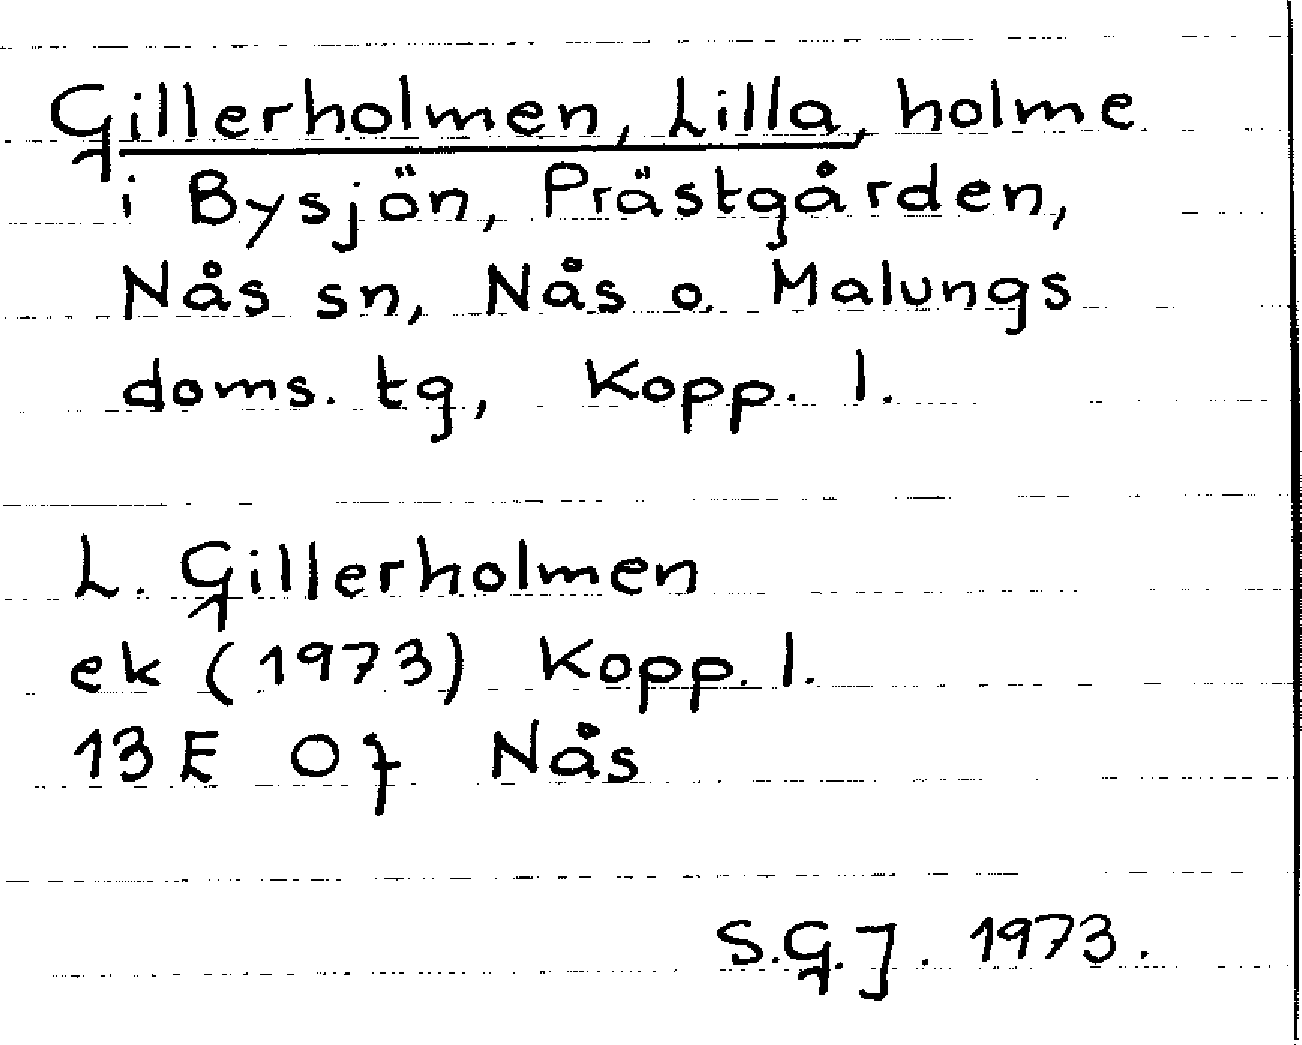 Gillerholmen, Lilla, holme
i Bysjön, Prästgården,
Nås sn, Nås o. Malungs
doms. tg, Kopp. l.
L. Gillerholmen
ek (1973) Kopp. l.
13E 0f Nås
S.G.J. 1973.